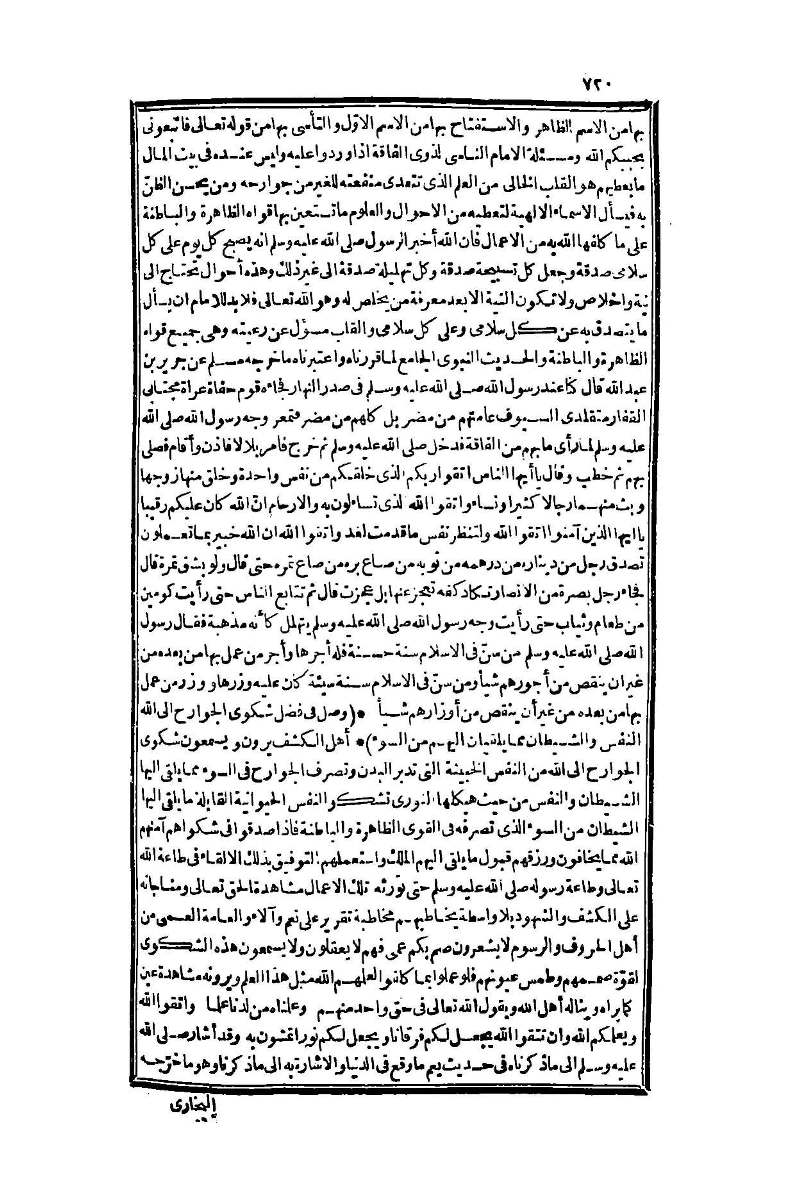 ٧٢٠
بها من الاسم الظاهر والاستفتاح بها من الاسم الاوّل والتأسى بها من قوله تعالى فاتبعونى
يحببكم الله ومسئلة الامام الناس لذوى الفاقة اذا وردوا عليه وليس عنده فى بيت المال
ما يعطيهم هو القلب الخالى من العلم الذى تتعدى منفعته للغير من جوارحه ومن يحسن الظنّ
به فيسأل الاسماء الالهية لتعطيه من الاحوال والعلوم ما تستعين بها قواه الظاهرة والباطنة
على ما كلفها الله به من الاعمال فان الله أخبر الرسول صلى الله عليه وسلم انه يصبح كل يوم على كل
سلامى صدقة وجعل كل تسبيحة صدقة وكل تهليلة صدقة الى غير ذلك وهذه أحوال تحتاج الى
نية واخلاص ولا تكون النية الا بعد معرفة من يخلص له وهو الله تعالى فلا بد للامام ان يسأل
ما يتصدق به عن كل سلامى وعلى كل سلامى والقلب مسؤل عن رعيته وهى جميع قواه
الظاهرة والباطنة والحديث النبوى الجامع لما قررناه واعتبرناه ما خرجه مسلم عن جرير بن
عبد الله قال كنا عند رسول الله صلى الله عليه وسلم فى صدر النهار فجاءه قوم حفاة عراة مجتابى
القفار متقلدى السيوف عامتهم من مضر بل كلهم من مضر فتمعر وجه رسول الله صلى الله
عليه وسلم لما رأى ما بهم من الفاقة فدخل صلى الله عليه وسلم ثم خرج فامر بلالا فاذن وأقام فصلى
بهم ثم خطب وقال يا أيها الناس اتقوا ربكم الذى خلقكم من نفس واحدة وخلق منها زوجها
وبث منهما رجالا كثيرا ونساء واتقوا الله الذى تساءلون به والارحام انّ الله كان عليكم رقيبا
يا ايها الذين آمنوا اتقوا الله ولتنظر نفس ما قدمت لغد واتقوا الله ان الله خبير بما تعملون
تصدق رجل من ديناره من درهمه من ثوبه من صاع بره من صاع تمره حتى قال ولو بشق تمرة قال
فجاء رجل بصرة من الانصار تكاد كفه تعجز عنها بل عجزت قال ثم تتابع الناس حتى رأيت كومين
من طعام وثياب حتى رأيت وجه رسول الله صلى الله عليه وسلم يتهلل كأنه مذهبة فقال رسول
الله صلى الله عليه وسلم من سنّ فى الاسلام سنة حسنة فله أجرها وأجر من عمل بها من بعده من
غير ان ينقص من أجورهم شيأ ومن سنّ فى الاسلام سنة سيئة كان عليه وزرها ووزر من عمل
بها من بعده من غير أن ينقص من أوزارهم شيأ * (وصل فى فضل شكوى الجوارح الى الله
النفس والشيطان مما يلقيان اليهم من السوء) * أهل الكشف يرون ويسمعون شكوى
الجوارح الى الله من النفس الخبيثة التى تدبر البدن وتصرف الجوارح فى السوء مما يلقى اليها
الشيطان والنفس من حيث هيكلها النورى تشكو النفس الحيوانية القابلة ما يلقى اليها
الشيطان من السوء الذى تصرفه فى القوى الظاهرة والباطنة فاذا صدقوا فى شكواهم آمنهم
الله مما يخافون ورزقهم قبول ما يلقى اليهم الملك واستعملهم التوفيق بذلك الالقاء فى طاعة الله
تعالى وطاعة رسوله صلى الله عليه وسلم حتى تورثه تلك الاعمال مشاهدة الحق تعالى ومناجاته
على الكشف والشهود بلا واسطة يخاطبهم مخاطبة تقرير على نعم وآلاء والعامة العمى من
أهل الحروف والرسوم لا يشعرون صم بكم عمى فهم لا يعقلون ولا يسمعون هذه الشكوى
لقوّة صممهم وطمس عيونهم فلو عملوا بما كلفوا لعلمهم الله مثل هذا العلم ويرونه مشاهدة عين
كما يراه ويناله أهل الله ويقول الله تعالى فى حق واحد منهم وعلمناه من لدنا علما واتقوا الله
ويعلمكم الله وان تتقوا الله يجعل لكم فرقانا ويجعل لكم نورا تمشون به وقد أشار صلى الله
عليه وسلم الى ما ذكرناه فى حديث يعم ما وقع فى الدنيا والاشارة به الى ما ذكرناه وهو ما خرّجه
البخارى